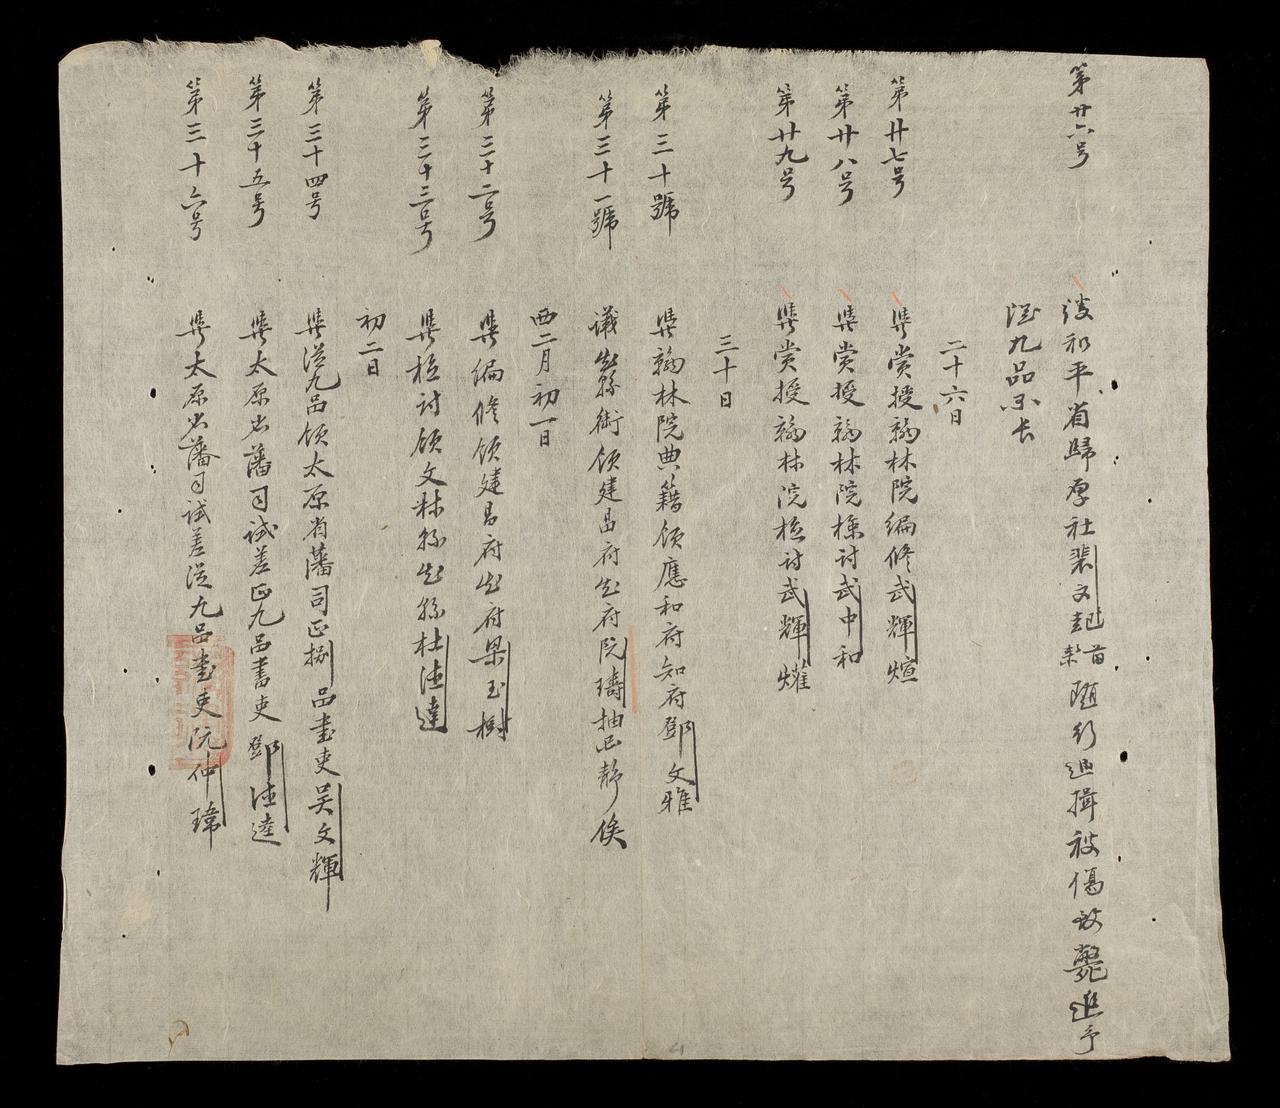 第廿六号 淩和平省歸厚社裴文起首隨行追揖被傷致斃追予
從九品百长
二十六日
第廿七号 準賞授翰林院編修武輝煊
第廿八号 準賞授翰林院檢討武中和
第廿九号 準賞授翰林院檢討武輝㸌
三十日
第三十號 準翰林院典籍領應和府知府鄧文雅
第三十一號 議 縣銜領建昌府知府阮璹抽 靜俟
西二月初一日
第三十二号 準編修領建昌府知府梁玉樹
第三十三号 準檢討領文林縣知縣杜德達
初二日
第三十四号 準從九品領太原省藩司正捌品書吏吴文輝
第三十五号 準太原省藩司試差正九品書吏鄧德逵
第三十六号 準太原省藩司試差從九品書吏阮仲瑋